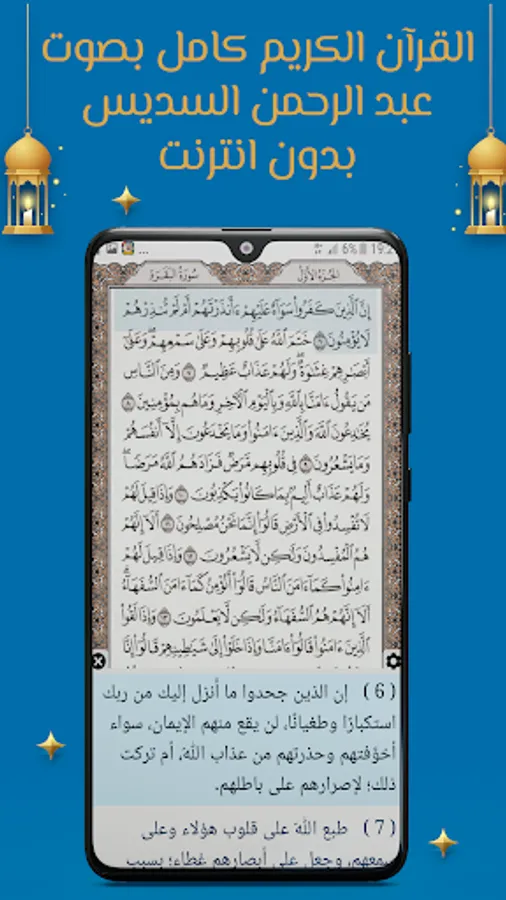 القرآن الكريم كامل بصوت
عبد الرحمن السديس
بدون انترنت
... 6% 19:2
سورة البقرة
الجزء الأول
إِنَّ ٱلَّذِينَ كَفَرُوا۟ سَوَآءٌ عَلَيْهِمْ ءَأَنذَرْتَهُمْ أَمْ لَمْ تُنذِرْهُمْ
لَا يُؤْمِنُونَ ٦ خَتَمَ ٱللَّهُ عَلَىٰ قُلُوبِهِمْ وَعَلَىٰ سَمْعِهِمْ وَعَلَىٰٓ
أَبْصَٰرِهِمْ غِشَٰوَةٌ وَلَهُمْ عَذَابٌ عَظِيمٌ ٧ وَمِنَ ٱلنَّاسِ
مَن يَقُولُ ءَامَنَّا بِٱللَّهِ وَبِٱلْيَوْمِ ٱلْءَاخِرِ وَمَا هُم بِمُؤْمِنِينَ ٨
يُخَٰدِعُونَ ٱللَّهَ وَٱلَّذِينَ ءَامَنُوا۟ وَمَا يَخْدَعُونَ إِلَّآ أَنفُسَهُمْ
وَمَا يَشْعُرُونَ ٩ فِى قُلُوبِهِم مَّرَضٌ فَزَادَهُمُ ٱللَّهُ مَرَضًا
وَلَهُمْ عَذَابٌ أَلِيمٌۢ بِمَا كَانُوا۟ يَكْذِبُونَ ١٠ وَإِذَا قِيلَ لَهُمْ
لَا تُفْسِدُوا۟ فِى ٱلْأَرْضِ قَالُوٓا۟ إِنَّمَا نَحْنُ مُصْلِحُونَ ١١ أَلَآ إِنَّهُمْ
هُمُ ٱلْمُفْسِدُونَ وَلَٰكِن لَّا يَشْعُرُونَ ١٢ وَإِذَا قِيلَ لَهُمْ
ءَامِنُوا۟ كَمَآ ءَامَنَ ٱلنَّاسُ قَالُوٓا۟ أَنُؤْمِنُ كَمَآ ءَامَنَ ٱلسُّفَهَآءُ
أَلَآ إِنَّهُمْ هُمُ ٱلسُّفَهَآءُ وَلَٰكِن لَّا يَعْلَمُونَ ١٣ وَإِذَا لَقُوا۟
ٱلَّذِينَ ءَامَنُوا۟ قَالُوٓا۟ ءَامَنَّا وَإِذَا خَلَوْا۟ إِلَىٰ شَيَٰطِينِهِمْ قَالُوٓا۟ إِنَّا
(6) إن الذين جحدوا ما أُنزل إليك من ربك
استكبارًا وطغيانًا، لن يقع منهم الإيمان، سواء
أخوَّفتهم وحذرتهم من عذاب الله، أم تركت
ذلك؛ لإصرارهم على باطلهم.
(7) طبع الله على قلوب هؤلاء وعلى
سمعهم، وجعل على أبصارهم غطاء؛ بسبب